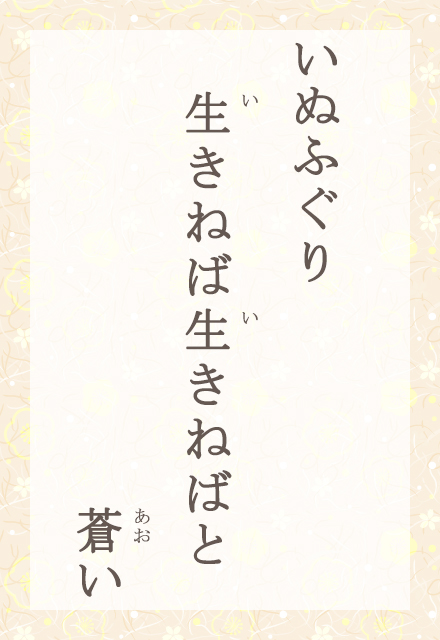 いぬふぐり
生きねば生きねばと
蒼い
い
い
あお